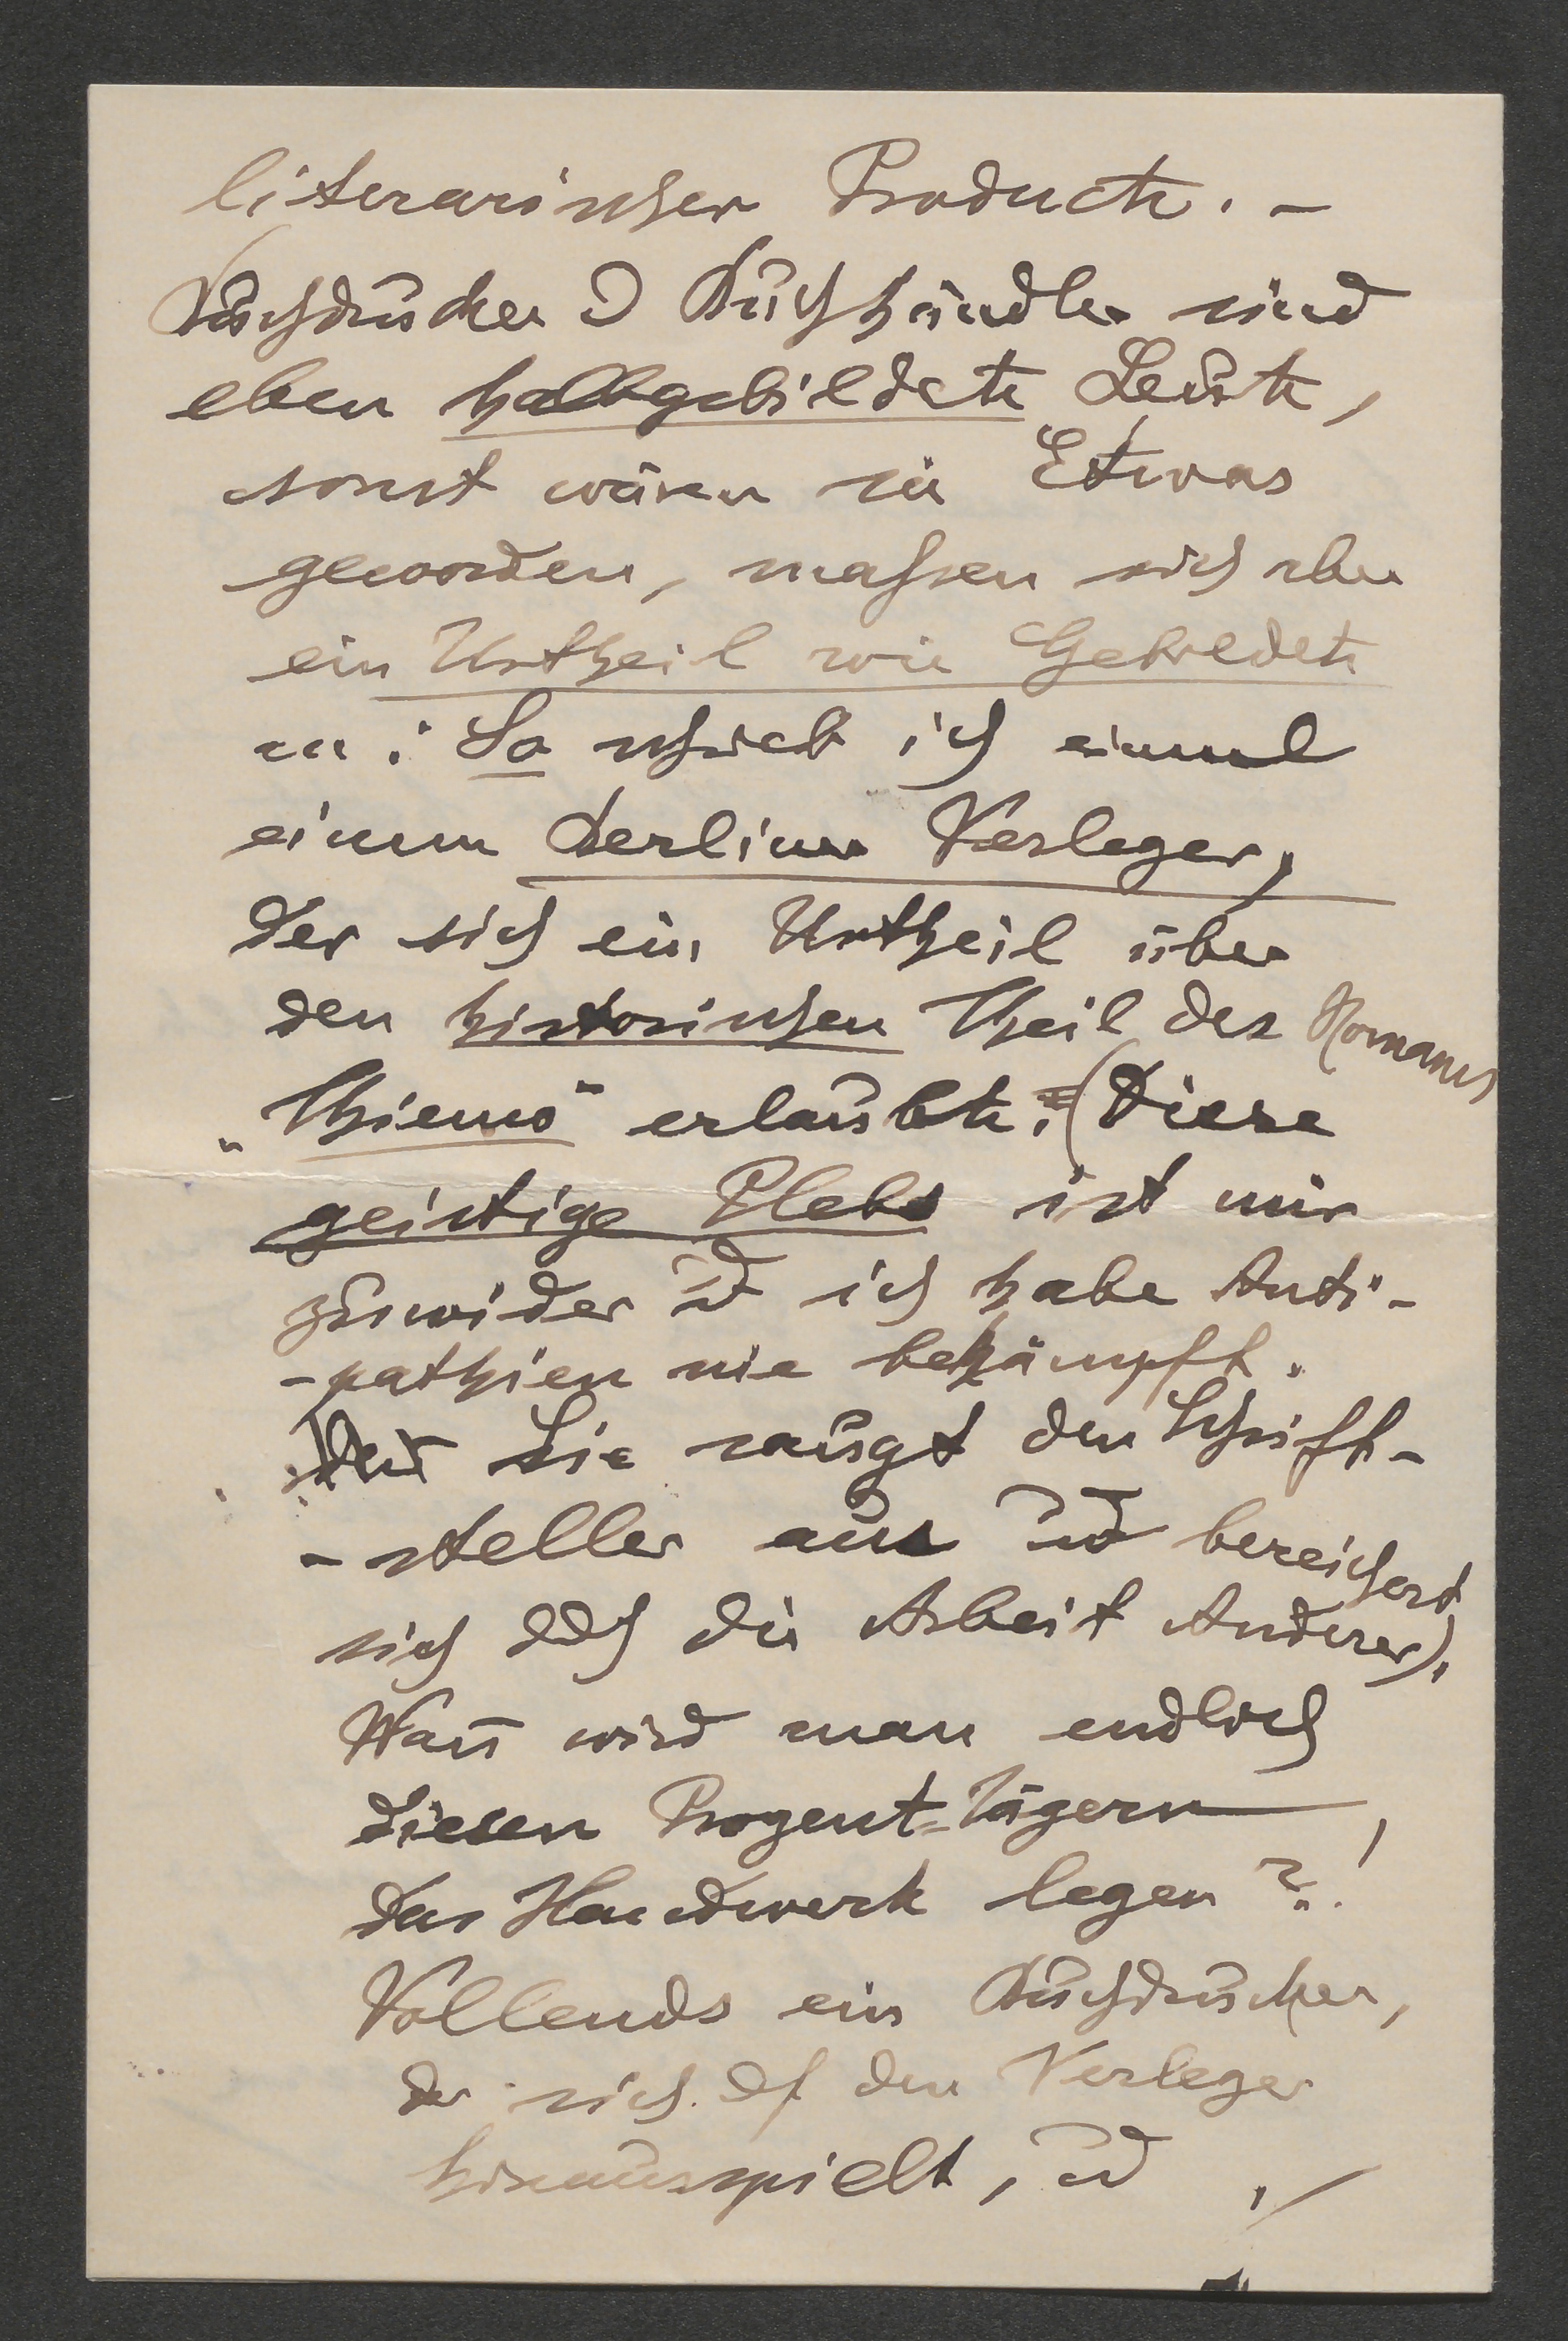 literarischer Producte. –
Buchdrucker u Buchhändler sind
eben halbgebildete Leute,
sonst wären sie Etwas
geworden, maßen sich aber
ein Urtheil wie Gebildete
an: So schrieb ich einmal
einem Berliner Verleger,
der sich ein Urtheil über
den historischen Theil des Romanes
„Thiemo“ erlaubte. (Diese
geistige Plebs ist mir
zuwider ud ich habe Anti-
-pathien nie bekämpft.
Sie saugt den Schrift-
-steller aus ud bereichert
sich ddch die Arbeit Anderer).
Wañ wird man endlich
diesen Prozent=Jägern
das Handwerk legen?!
Vollends ein Buchdrucker,
der sich df den Verleger
hinausspielt, ud ./